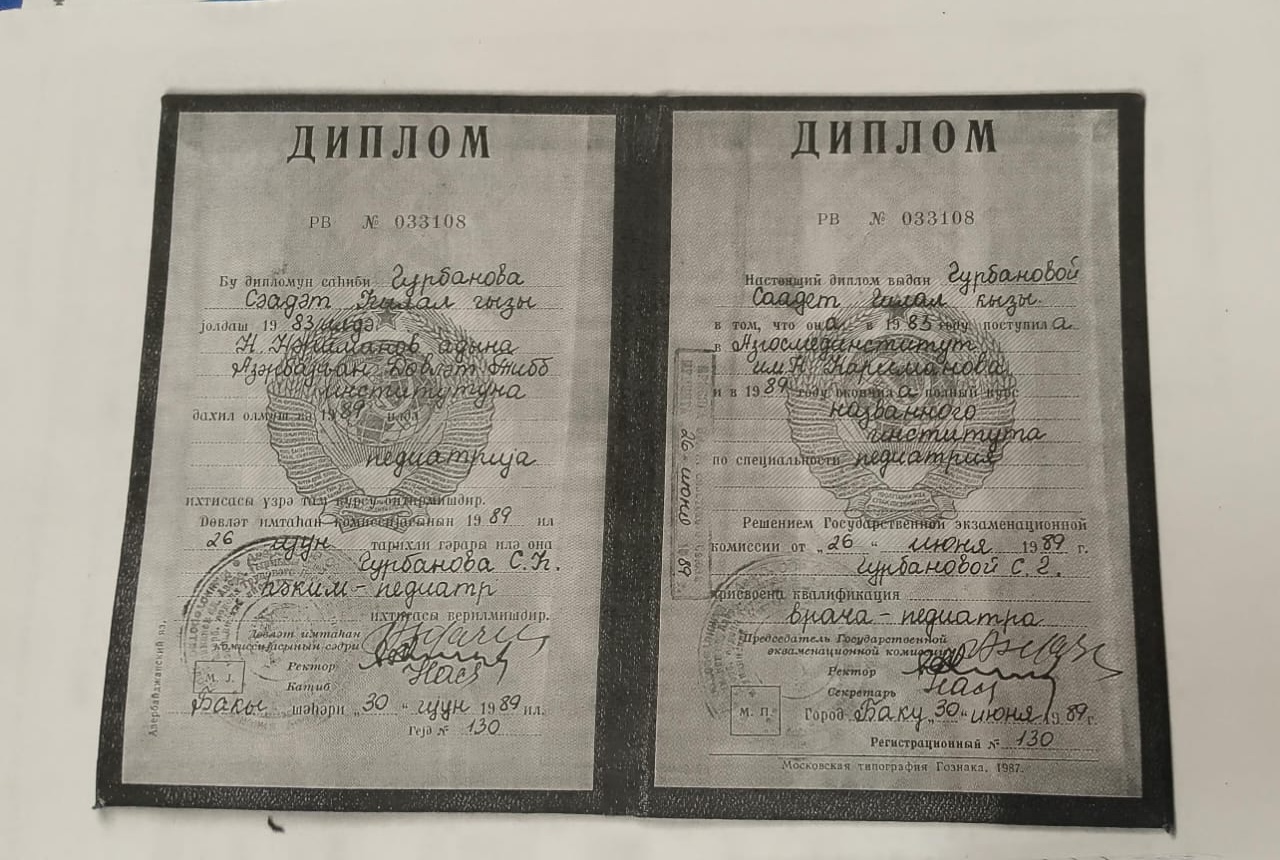 ДИПЛОМ
РВ № 033108
Бу дипломун саһиби Гурбанова
Сәадәт Һилал гызы
јолдаш 19 83 илдә
Н. Нәриманов адына
Азәрбајҹан Дөвләт Тибб
институтуна
дахил олмуш вә 19 89 илдә
педиатрија
ихтисасы үзрә там курсу битирмишдир.
Дөвләт имтаһан комиссијасынын 19 89 ил
26 ијун тарихли гәрары илә она
Гурбанова С.Һ.
һәким – педиатр
ихтисасы верилмишдир.
Дөвләт имтаһан
комиссијасынын сәдри
Ректор
Катиб
М. Ј.
Бакы шәһәри „30“ ијун 1989 ил.
Гејд № 130
Азербайджанский яз.
ДИПЛОМ
РВ № 033108
Настоящий диплом выдан Гурбановой
Саадет Гилал кызы
в том, что она в 19 83 году поступила
в Азгосмединститут
им. Н. Нариманова
и в 19 89 году окончила полный курс
названного
института
по специальности педиатрия
Решением Государственной экзаменационной
комиссии от „26“ июня 1989 г.
Гурбановой С. Г.
присвоена квалификация
врача – педиатра
Председатель Государственной
экзаменационной комиссии
Ректор
Секретарь
М. П.
Город Баку „30“ июня 1989 г.
Регистрационный № 130
Московская типография Гознака, 1987.
26 июня 89